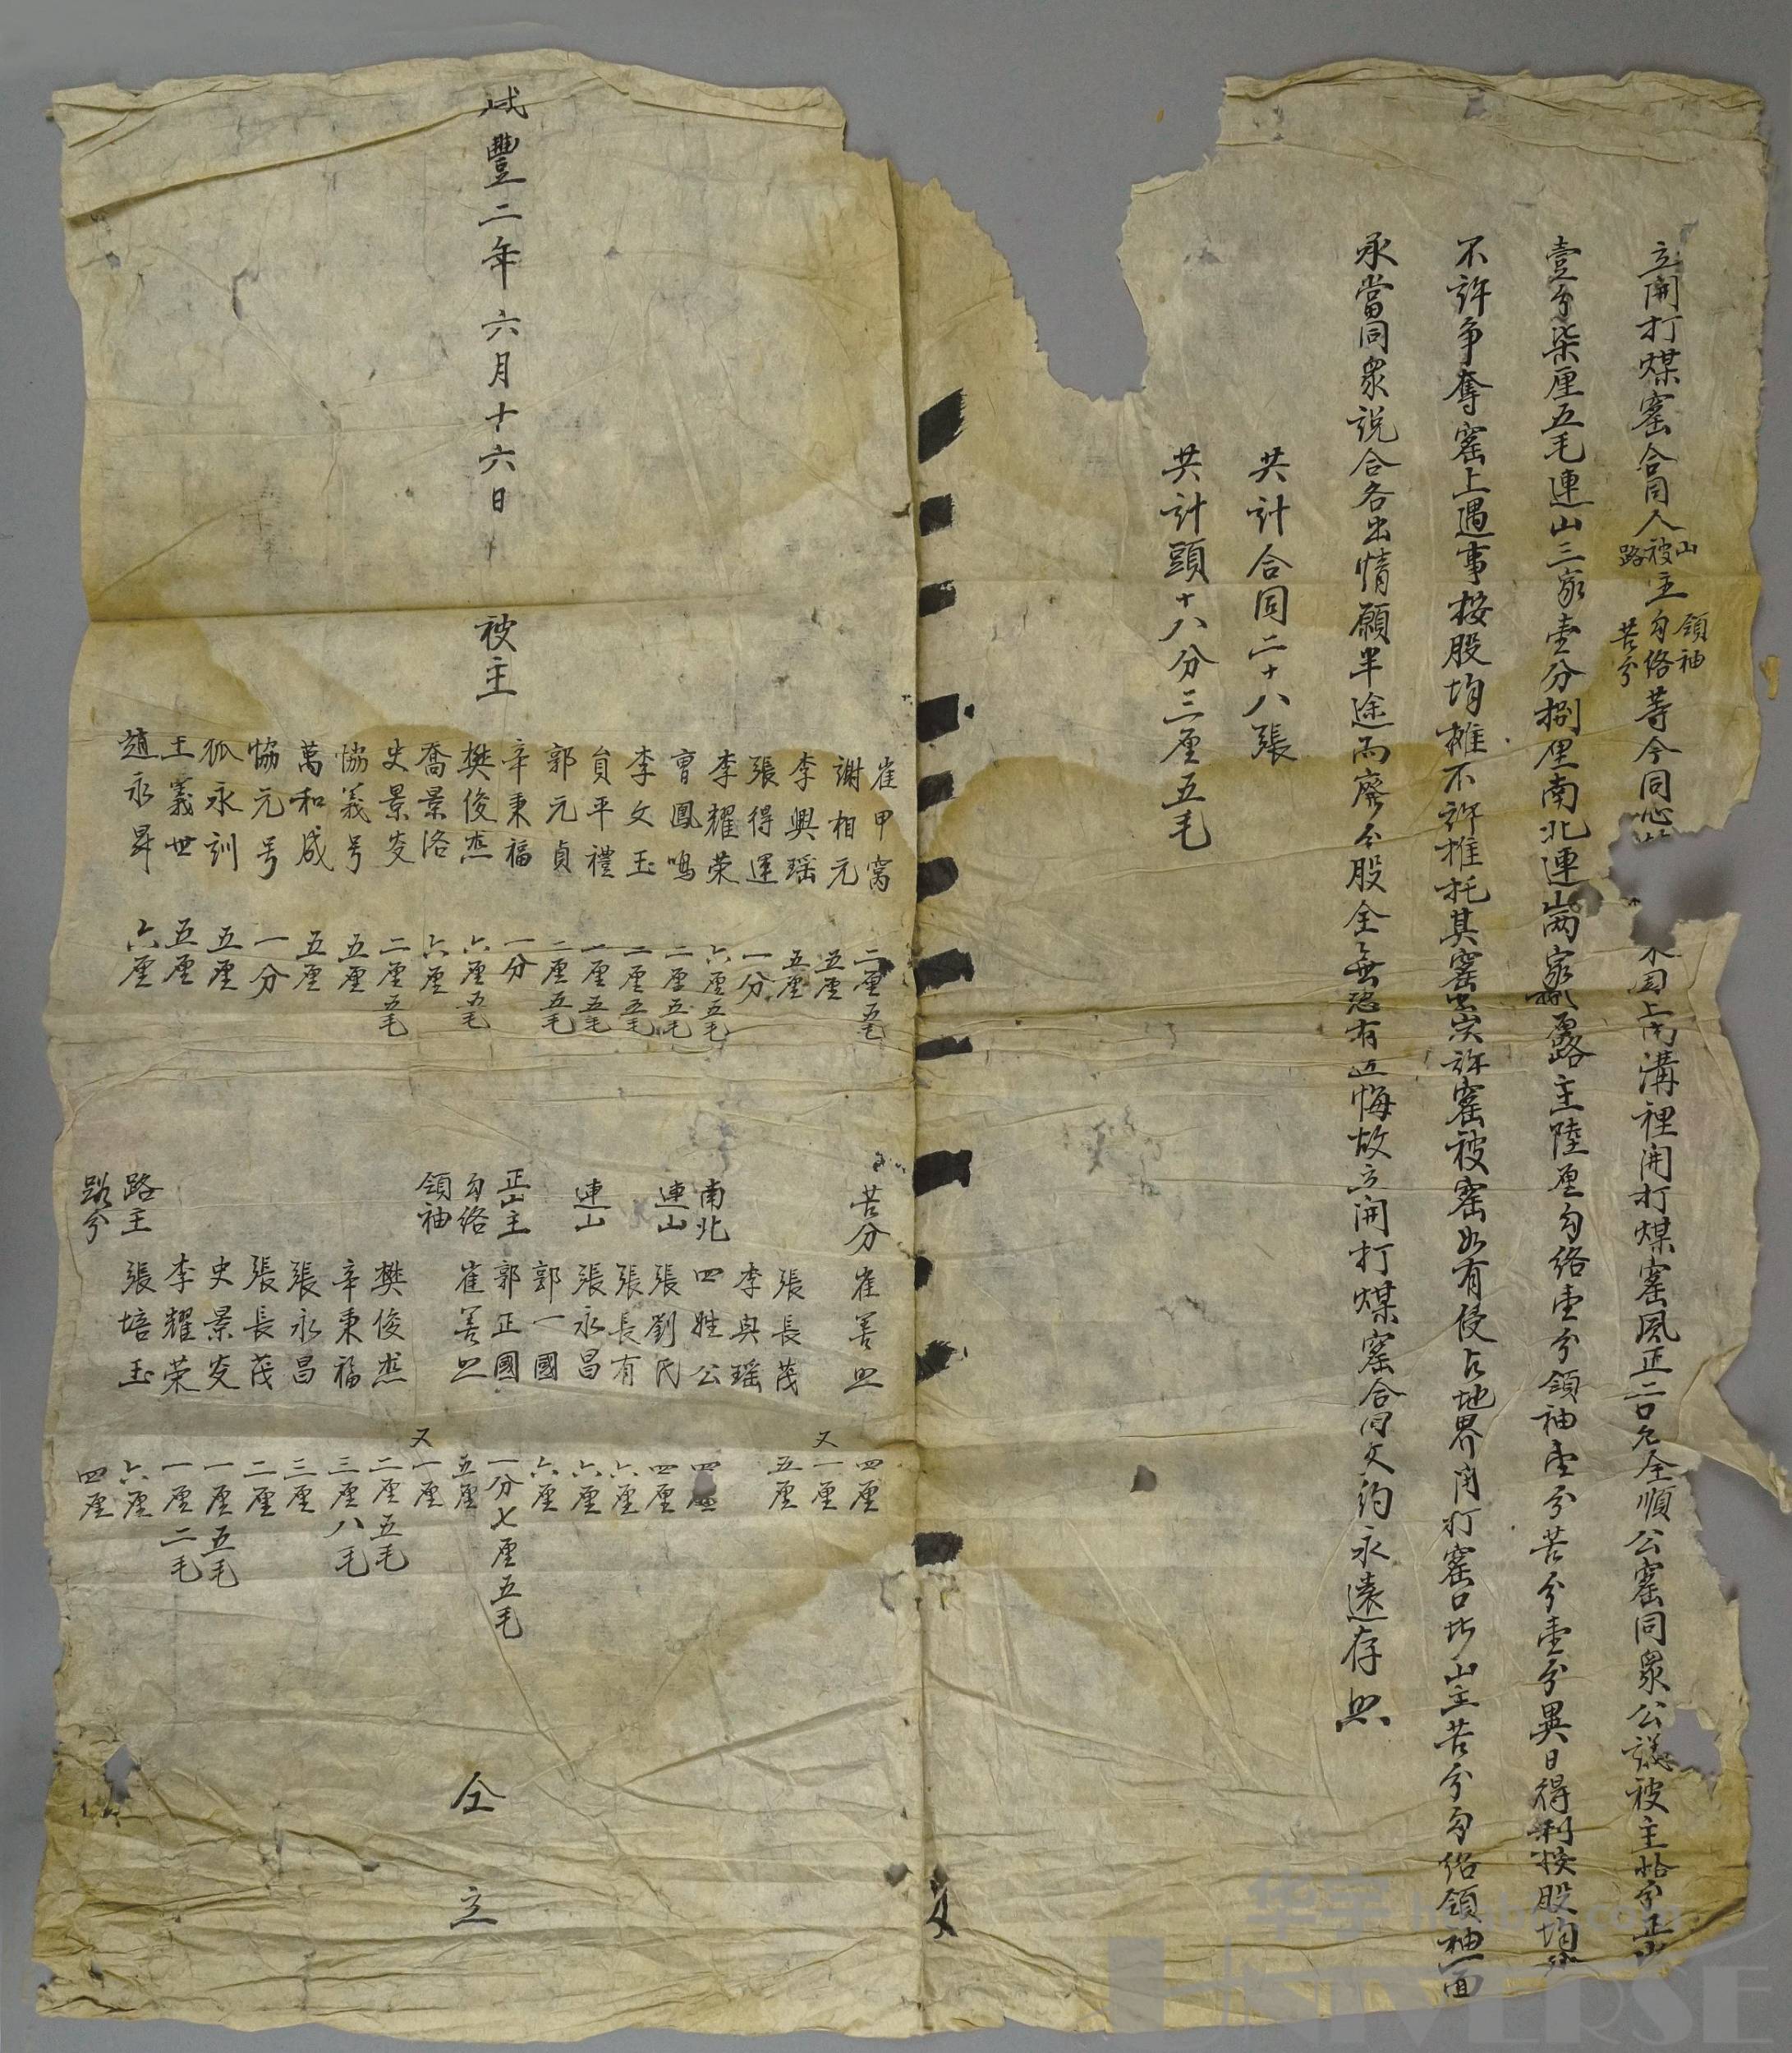 立開打煤窑合同人山被路主領袖勾络苦分等今同心 上南溝裡開打煤窑风正二口名全順公窑同衆公議被主拾分正山
壹分柒厘五毛連山三家壹分捌厘南北連山两家捌厘路主陸厘勾络壹分領袖壹分苦分壹分異日得利按股均
不許争奪窑上遇事按股均摊不許推托其窑出炭許窑被窑如有侵占地界開打窑口皆山主苦分勾络領袖一面
承當同衆説合各出情願半途而廢分股全無恐有返悔故立開打煤窑合同文約永遠存照
共計合同二十八張
共計頭十八分三厘五毛
崔甲窝 二厘五毛
謝相元 五厘
李興瑶 五厘
張得運 一分
李耀荣 六厘五毛
曹鳳鳴 二厘五毛
李文玉 二厘五毛
貟平禮 二厘五毛
郭元貞 二厘五毛
辛秉福 一分
樊俊杰 六厘五毛
喬景洛 六厘
史景 二厘五毛
協義号 五厘
萬和成 五厘
協元号 一分
狐永訓 五厘
王義世 五厘
趙永昇 六厘
咸豐二年六月十六日 被主
苦分 崔善照 四厘
又一厘
張長茂 五厘
李興瑶
南北 四姓公 四厘
連山 張劉氏 四厘
張長有 六厘
連山 張永昌 六厘
郭一國 六厘
正山主 郭正國 一分七厘五毛
勾络 崔善照 五厘
領袖 又一厘
樊俊杰 二厘五毛
辛秉福 三厘八毛
張永昌 三厘
張長茂 二厘
史景 一厘五毛
李耀荣 一厘二毛
路主 張培玉 六厘
路分 四厘
仝立
华宇
UNIVERSE